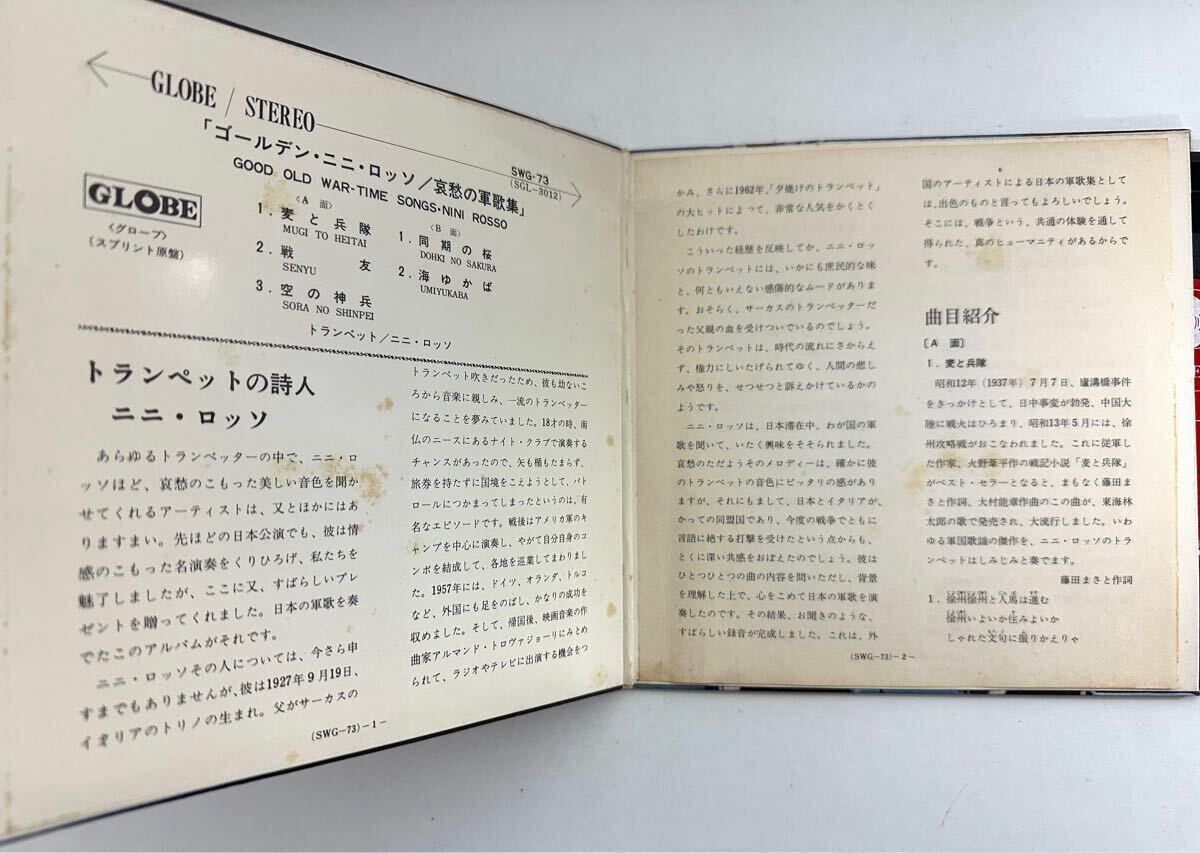 GLOBE / STEREO
「ゴールデン・ニニ・ロッソ/哀愁の軍歌集」
GOOD OLD WAR-TIME SONGS・NINI ROSSO
SWG-73
(SGL-3012)
GLOBE
〈グローブ〉
(スプリント原盤)
〈A 面〉
1. 麦と兵隊
MUGI TO HEITAI
2. 戦 友
SENYU
3. 空の神兵
SORA NO SHINPEI
〈B 面〉
1. 同期の桜
DOHKI NO SAKURA
2. 海ゆかば
UMIYUKABA
トランペット/ニニ・ロッソ
トランペットの詩人
ニニ・ロッソ
あらゆるトランペッターの中で、ニニ・ロ
ッソほど、哀愁のこもった美しい音色を聞か
せてくれるアーティストは、又とほかにはあ
りますまい。先ほどの日本公演でも、彼は情
感のこもった名演奏をくりひろげ、私たちを
魅了しましたが、ここに又、すばらしいプレ
ゼントを贈ってくれました。日本の軍歌を奏
でたこのアルバムがそれです。
ニニ・ロッソその人については、今さら申
すまでもありませんが、彼は1927年9月19日、
イタリアのトリノの生まれ。父がサーカスの
トランペット吹きだったため、彼も幼ないこ
ろから音楽に親しみ、一流のトランペッター
になることを夢みていました。18才の時、南
仏のニースにあるナイト・クラブで演奏する
チャンスがあったので、矢も楯もたまらず、
旅券を持たずに国境をこえようとして、パト
ロールにつかまってしまったというのは、有
名なエピソードです。戦後はアメリカ軍のキ
ャンプを中心に演奏し、やがて自分自身のコ
ンボを結成して、各地を巡業してまわりまし
た。1957年には、ドイツ、オランダ、トルコ
など、外国にも足をのばし、かなりの成功を
収めました。そして、帰国後、映画音楽の作
曲家アルマンド・トロヴァジョーリにみとめ
られて、ラジオやテレビに出演する機会をつ
(SWG-73)-1-
かみ、さらに1962年、「夕焼けのトランペット」
の大ヒットによって、非常な人気をかくとく
したわけです。
こういった経歴を反映してか、ニニ・ロッ
ソのトランペットには、いかにも庶民的な味
と、何ともいえない感傷的なムードがありま
す。おそらく、サーカスのトランペッターだ
った父親の血を受けついでいるのでしょう。
そのトランペットは、時代の流れにさからえ
ず、権力にしいたげられてゆく、人間の悲し
みや怒りを、せつせつと訴えかけているかの
ようです。
ニニ・ロッソは、日本滞在中、わが国の軍
歌を聞いて、いたく興味をそそられました。
哀愁のただようそのメロディーは、確かに彼
のトランペットの音色にピッタリの感があり
ますが、それにもまして、日本とイタリアが、
かつての同盟国であり、今度の戦争でともに
言語に絶する打撃を受けたという点からも、
とくに深い共感をおぼえたのでしょう。彼は
ひとつひとつの曲の内容を問いただし、背景
を理解した上で、心をこめて日本の軍歌を演
奏したのです。その結果、お聞きのような、
すばらしい録音が完成しました。これは、外
国のアーティストによる日本の軍歌集として
は、出色のものと言ってもよろしいでしょう。
そこには、戦争という、共通の体験を通して
得られた、真のヒューマニティがあるからで
す。
曲目紹介
〔A 面〕
1. 麦と兵隊
昭和12年(1937年)7月7日、廬溝橋事件
をきっかけとして、日中事変が勃発、中国大
陸に戦火はひろまり、昭和13年5月には、徐
州攻略戦がおこなわれました。これに従軍し
た作家、火野葦平作の戦記小説「麦と兵隊」
がベスト・セラーとなると、まもなく藤田ま
さと作詞、大村能章作曲のこの曲が、東海林
太郎の歌で発売され、大流行しました。いわ
ゆる軍国歌謡の傑作を、ニニ・ロッソのトラ
ンペットはしみじみと奏でます。
藤田まさと作詞
1. 徐州徐州と人馬は進む
徐州いよいか住みよいか
しゃれた文句に振りかえりゃ
(SWG-73)-2-